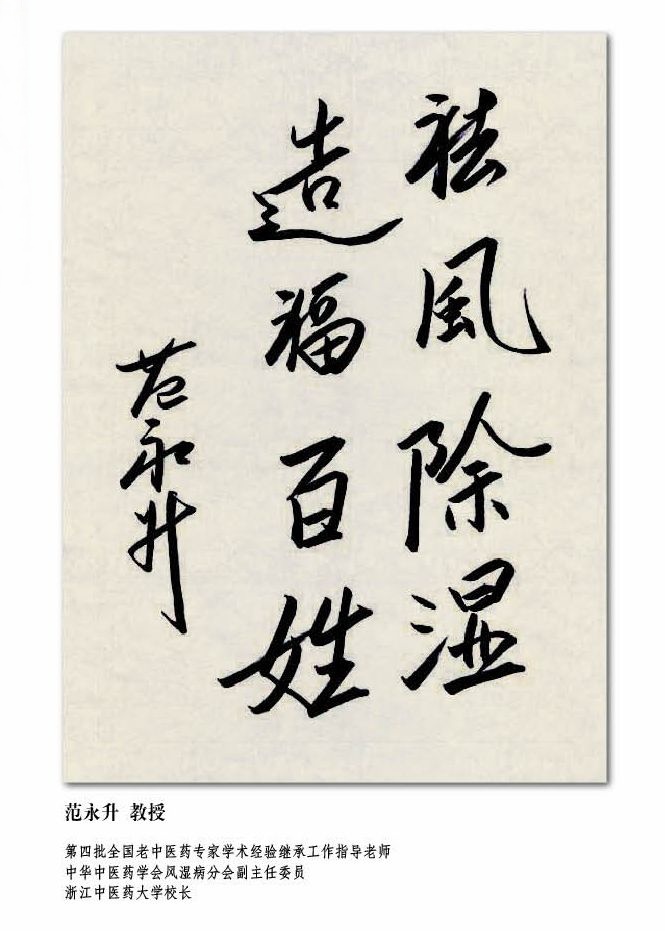 祛風除湿
造福百姓
范永升
范永升 教授
第四批全国老中医药专家学术经验继承工作指导老师
中华中医药学会风湿病分会副主任委员
浙江中医药大学校长